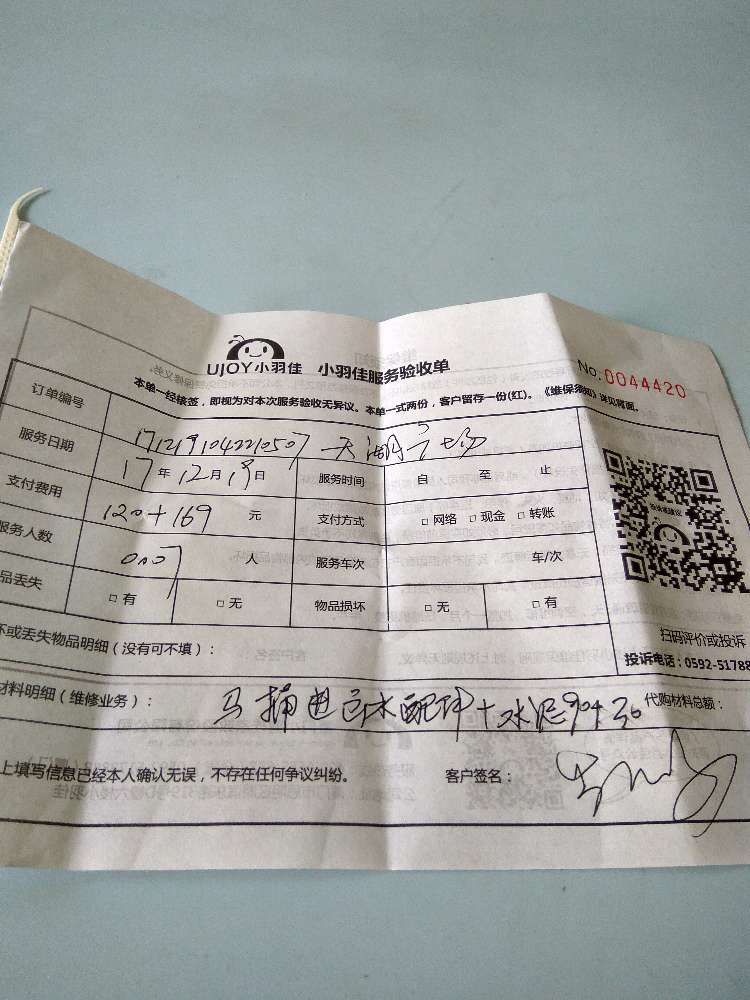 UJOY小羽佳 小羽佳服务验收单
No. 0044420
本单一经核签，即视为对本次服务验收无异议。本单一式两份，客户留存一份(红)。《维保须知》详见背面。
订单编号 天湖广场
服务日期 17 年 12 月 19 日 服务时间 自 至 止
支付费用 120+169 元 支付方式 □ 网络 □ 现金 □ 转账
服务人数 人 服务车次 车/次
品丢失 □ 有 □ 无 物品损坏 □ 无 □ 有
扫码评价或投诉
坏或丢失物品明细（没有可不填）：
投诉电话：0592-51788
材料明细（维修业务）： 马桶 水配件+水泥 代购材料总额：
上填写信息已经本人确认无误，不存在任何争议纠纷。 客户签名：